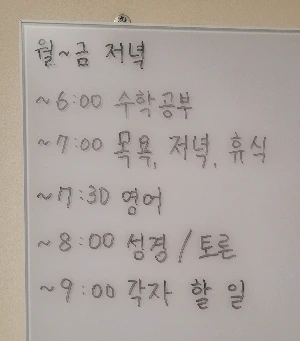 월~금 저녁
~6:00 수학공부
~7:00 목욕, 저녁, 휴식
~7:30 영어
~8:00 성경/토론
~9:00 각자 할 일